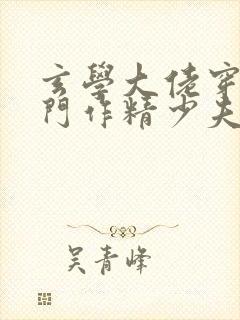 玄學大佬穿
門作精少夫
吴青峰